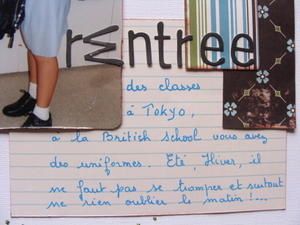 rentree
des classes
à Tokyo,
à la British School vous avez
des uniformes. Eté, Hiver, il
ne faut pas se tromper et surtout
ne rien oublier le matin !...